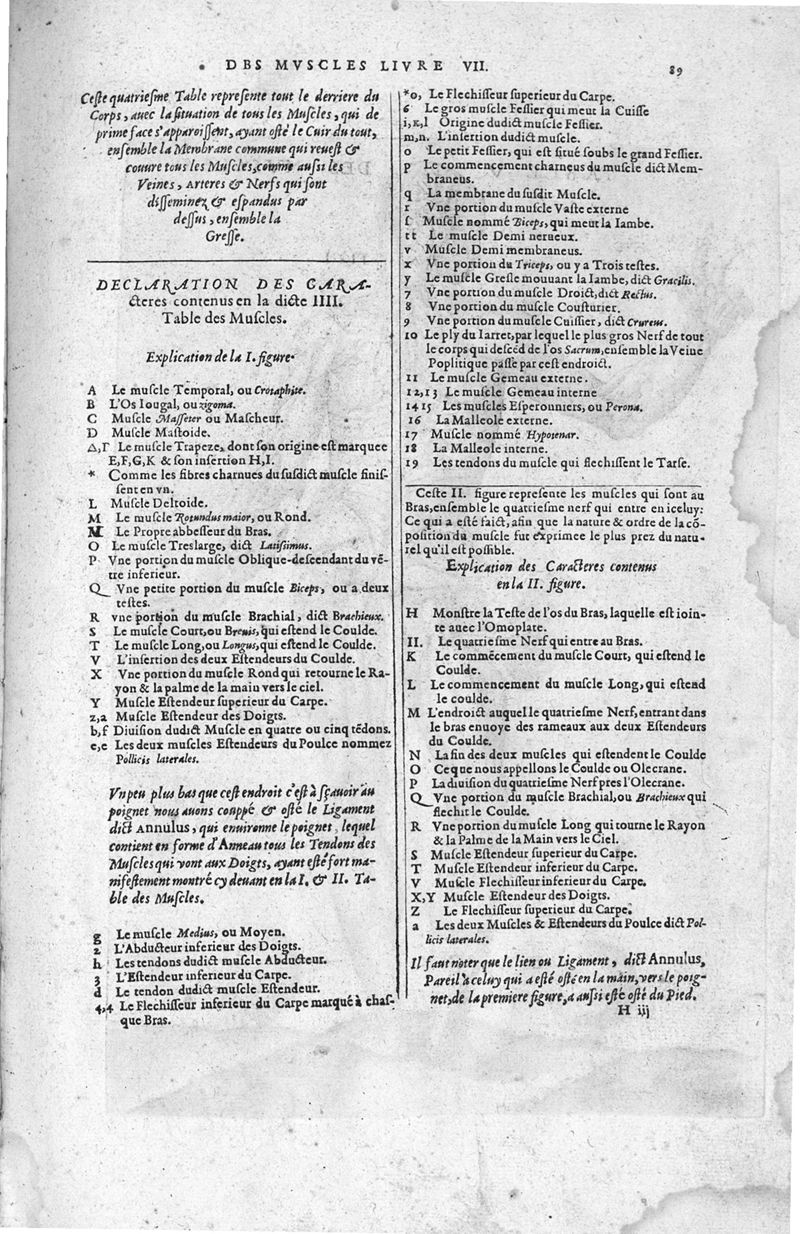 DES MVSCLES LIVRE VII.
89
Ceſte quatrieſme Table repreſente tout le derriere du
Corps, auec la ſituation de tous les Muſcles, qui de
prime face s'apparoiſſent, ayant oſté le Cuir du tout,
enſemble la Membrane commune qui reueſt &
couure tous les Muſcles, comme auſsi les
Veines, Arteres & Nerfs qui ſont
diſſeminez & eſpandus par
deſſus, enſemble la
Greſſe.
DECLARATION DES CARA-
cteres contenus en la dicte IIII.
Table des Muſcles.
Explication de la I. figure.
A Le muſcle Temporal, ou Crotaphite.
B L'Os Iougal, ou zigoma.
C Muſcle Maſſeter ou Maſcheur.
D Muſcle Maſtoide.
Δ,Γ Le muſcle Trapeze, dont ſon origine eſt marquee
E,F,G,K & ſon inſertion H,I.
* Comme les fibres charnues du ſuſdict muſcle finiſ-
ſent en vn.
L Muſcle Deltoide.
M Le muſcle Rotundus maior, ou Rond.
M Le Propre abbeſſeur du Bras.
O Le muſcle Treslarge, dict Latiſsimus.
P Vne portion du muſcle Oblique-deſcendant du vē-
tre inferieur.
Q Vne petite portion du muſcle Biceps, ou a deux
teſtes.
R vne portion du muſcle Brachial, dict Brachieux.
S Le muſcle Court, ou Breuis, qui eſtend le Coulde.
T Le muſcle Long, ou Longus, qui eſtend le Coulde.
V L'inſertion des deux Eſtendeurs du Coulde.
X Vne portion du muſcle Rond qui retourne le Ra-
yon & la palme de la main vers le ciel.
Y Muſcle Eſtendeur ſuperieur du Carpe.
z,a Muſcle Eſtendeur des Doigts.
b,f Diuiſion dudict Muſcle en quatre ou cinq tēdons.
e,e Les deux muſcles Eſtendeurs du Poulce nommez
Pollicis laterales.
Vn peu plus bas que ceſt endroit c'eſt à ſçauoir au
poignet nous auons couppé & oſté le Ligament
dict Annulus, qui enuironne le poignet, lequel
contient en forme d'Anneau tous les Tendons des
Muſcles qui vont aux Doigts, ayant eſté fort ma-
nifeſtement montré cy deuant en la I. & II. Ta-
ble des Muſcles.
g Le muſcle Medius, ou Moyen.
2 L'Abducteur inferieur des Doigts.
h Les tendons dudict muſcle Abducteur.
3 L'Eſtendeur inferieur du Carpe.
d Le tendon dudict muſcle Eſtendeur.
4,4 Le Flechiſſeur inferieur du Carpe marqué à chaſ-
que Bras.
*o, Le Flechiſſeur ſuperieur du Carpe.
6 Le gros muſcle Feſſier qui meut la Cuiſſe
i,K,l Origine dudict muſcle Feſſier.
m,n. L'inſertion dudict muſcle.
o Le petit Feſſier, qui eſt ſitué ſoubs le grand Feſſier.
p Le commencement charneus du muſcle dict Mem-
braneus.
q La membrane du ſuſdit Muſcle.
r Vne portion du muſcle Vaſte externe
ſ Muſcle nommé Biceps, qui meut la Iambe.
tt Le muſcle Demi nerueux.
v Muſcle Demi membraneus.
x Vne portion du Triceps, ou y a Trois teſtes.
y Le muſcle Greſle mouuant la Iambe, dict Gracilis.
7 Vne portion du muſcle Droict, dict Rectus.
8 Vne portion du muſcle Couſturier.
9 Vne portion du muſcle Cuiſſier, dict Crureus.
10 Le ply du Iarret, par lequel le plus gros Nerf de tout
le corps qui deſcēd de l'os Sacrum, enſemble la Veine
Poplitique paſſe par ceſt endroict.
11 Le muſcle Gemeau externe.
12,13 Le muſcle Gemeau interne
14 15 Les muſcles Eſperonniers, ou Perona.
16 La Malleole externe.
17 Muſcle nommé Hypotenar.
18 La Malleole interne.
19 Les tendons du muſcle qui flechiſſent le Tarſe.
Ceſte II. figure repreſente les muſcles qui ſont au
Bras, enſemble le quatrieſme nerf qui entre en iceluy:
Ce qui a eſté faict, afin que la nature & ordre de la cō-
poſition du muſcle fut exprimee le plus prez du natu-
rel qu'il eſt poſſible.
Explication des Caracteres contenus
en la II. figure.
H Monſtre la Teſte de l'os du Bras, laquelle eſt ioin-
te auec l'Omoplate.
II. Le quatrieſme Nerf qui entre au Bras.
K Le commēcement du muſcle Court, qui eſtend le
Coulde.
L Le commencement du muſcle Long, qui eſtend
le coulde.
M L'endroict auquel le quatrieſme Nerf, entrant dans
le bras enuoye des rameaux aux deux Eſtendeurs
du Coulde.
N La fin des deux muſcles qui eſtendent le Coulde
O Ce que nous appellons le Coulde ou Olecrane.
P La diuiſion du quatrieſme Nerf pres l'Olecrane.
Q Vne portion du muſcle Brachial, ou Brachieux qui
flechit le Coulde.
R Vne portion du muſcle Long qui tourne le Rayon
& la Palme de la Main vers le Ciel.
S Muſcle Eſtendeur ſuperieur du Carpe.
T Muſcle Eſtendeur inferieur du Carpe.
V Muſcle Flechiſſeur inferieur du Carpe.
X,Y Muſcle Eſtendeur des Doigts.
Z Le Flechiſſeur ſuperieur du Carpe.
a Les deux Muſcles & Eſtendeurs du Poulce dict Pol-
licis laterales.
Il faut noter que le lien ou Ligament, dict Annulus,
Pareil à celuy qui a eſté oſté en la main, vers le poig-
net, de la premiere figure, a auſsi eſté oſté du Pied.
H iij